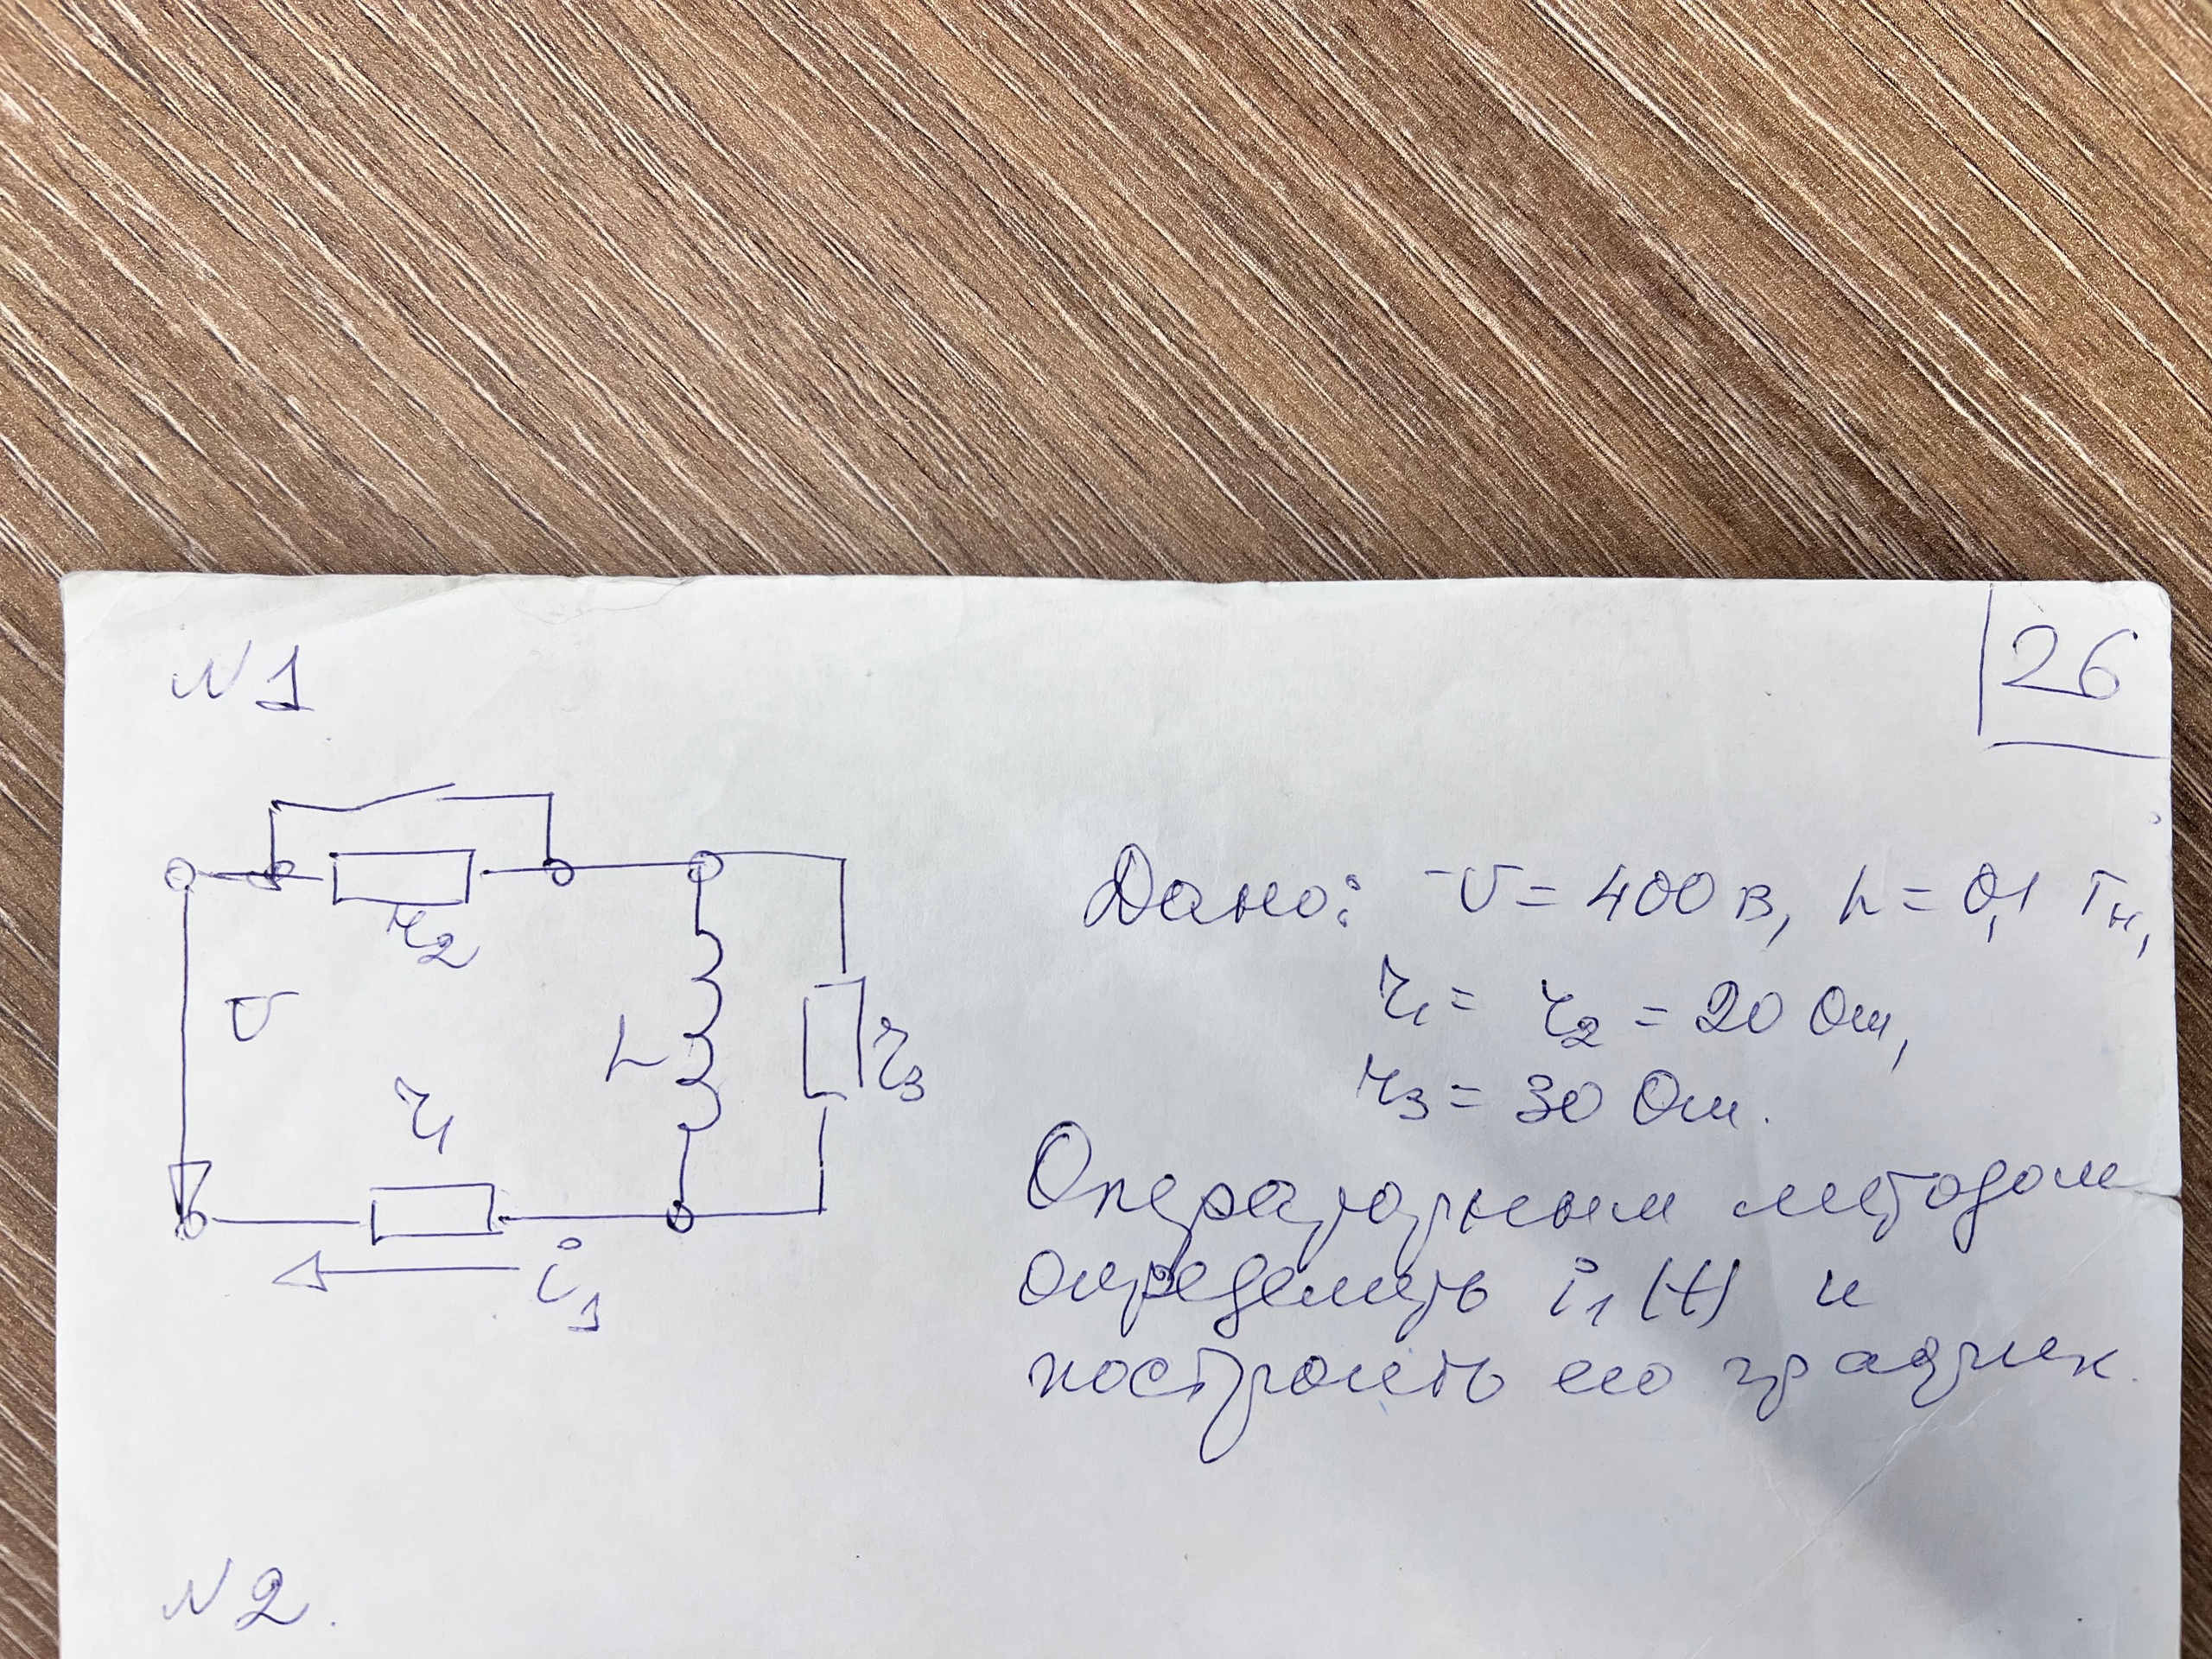 N 1
26
r2
U
L
r3
r1
i1
Дано: U = 400 В, L = 0,1 Гн,
r1 = r2 = 20 Ом,
r3 = 30 Ом.
Операторным методом
определить i1(t) и
построить его график.
N 2.